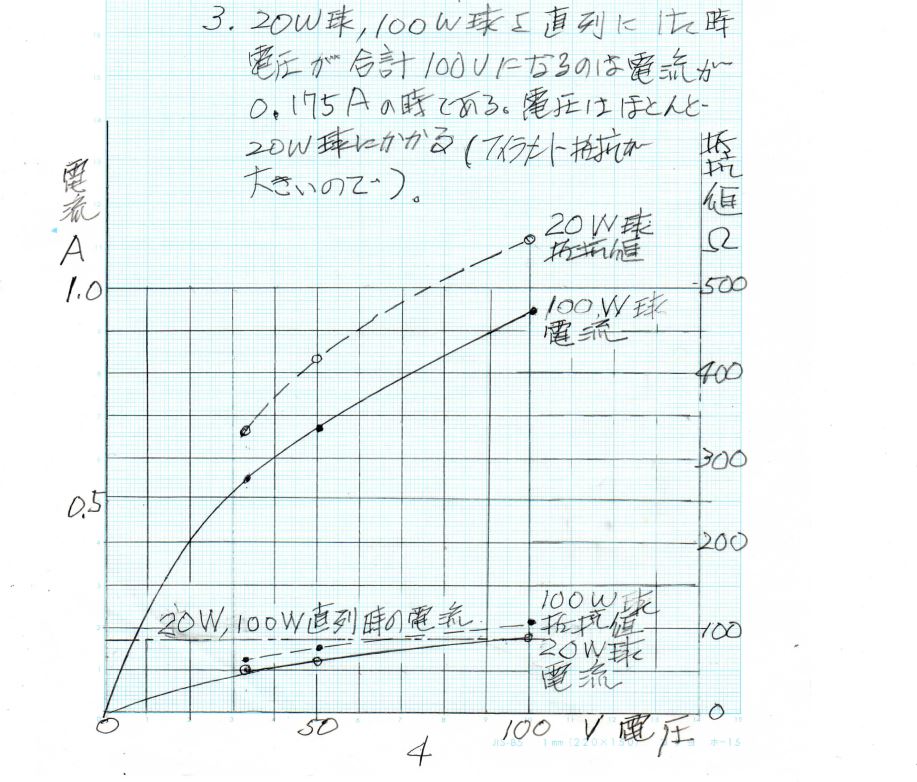 3. 20W球,100W球を直列にした時
電圧が合計100Vになるのは電流が
0.175Aの時である。電圧はほとんど
20W球にかかる(フィラメント抵抗が
大きいので)。
電流
A
抵抗値
Ω
20W球
抵抗値
1.0
500
100W球
電流
400
300
0.5
200
20W,100W直列時の電流
100W球
抵抗値
100
20W球
電流
0
0
50
100
V 電圧
4
JIS-B5 1mm(220×150)
ホ-15